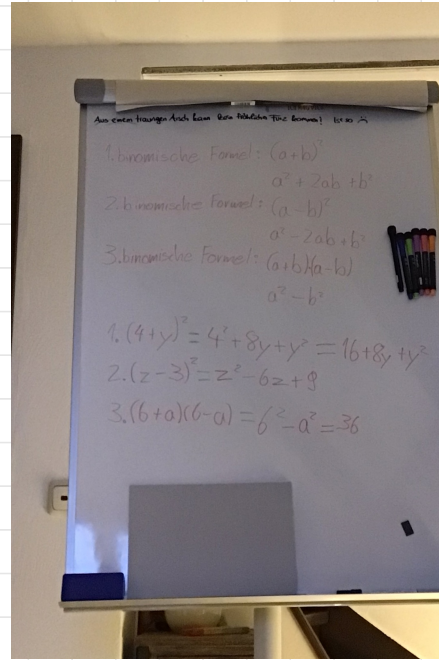 Aus einem traurigen Arsch kam kein fröhlicher Furz kommen! Ist so
1. binomische Formel: (a+b)²
a² + 2ab + b²
2. binomische Formel: (a-b)²
a² - 2ab + b²
3. binomische Formel: (a+b)(a-b)
a² - b²
1. (4+y)² = 4² + 8y + y² = 16 + 8y + y²
2. (z-3)² = z² - 6z + 9
3. (6+a)(6-a) = 6² - a² = 36